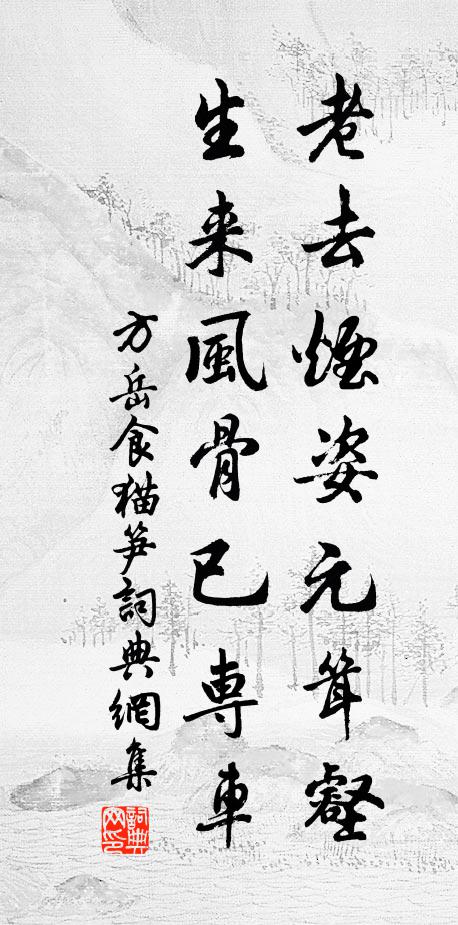 老去煙姿元耸壑
生来風骨已専車
方岳食猫笋詞典網集
詞典
网印